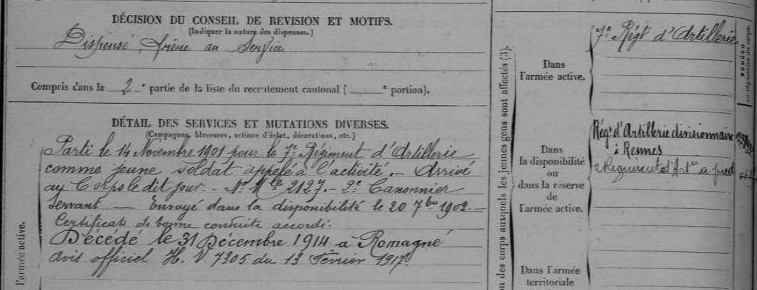 DÉCISION DU CONSEIL DE REVISION ET MOTIFS.
(Indiquer la nature des dispenses.)
Dispensé frère au service
Compris dans la 2e partie de la liste du recrutement cantonal ( e portion).
DÉTAIL DES SERVICES ET MUTATIONS DIVERSES.
(Campagnes, blessures, actions d'éclat, décorations, etc.)
Parti le 14 Novembre 1901 pour le 7e Régiment d'Artillerie
comme jeune soldat appelé à l'activité. Arrivé
au Corps le dit jour. - No Mle 2137. - 2e Canonnier
servant - Envoyé dans la disponibilité le 20 7bre 1902. -
Certificat de bonne conduite accordé.
Décédé le 31 Décembre 1914 à Romagné
avis officiel H. V. 7305 du 13 Fevrier 1917.
l'armée active.
ou des corps auxquels les jeunes gens sont affectés (3).
Dans
l'armée active.
7e Régt d'Artillerie
Dans
la disponibilité
ou
dans la réserve
de
l'armée active.
Régt d'Artillerie divisionnaire
à Rennes
2 Regiment d'Art à pied
Dans l'armée
territoriale
NUMÉRO